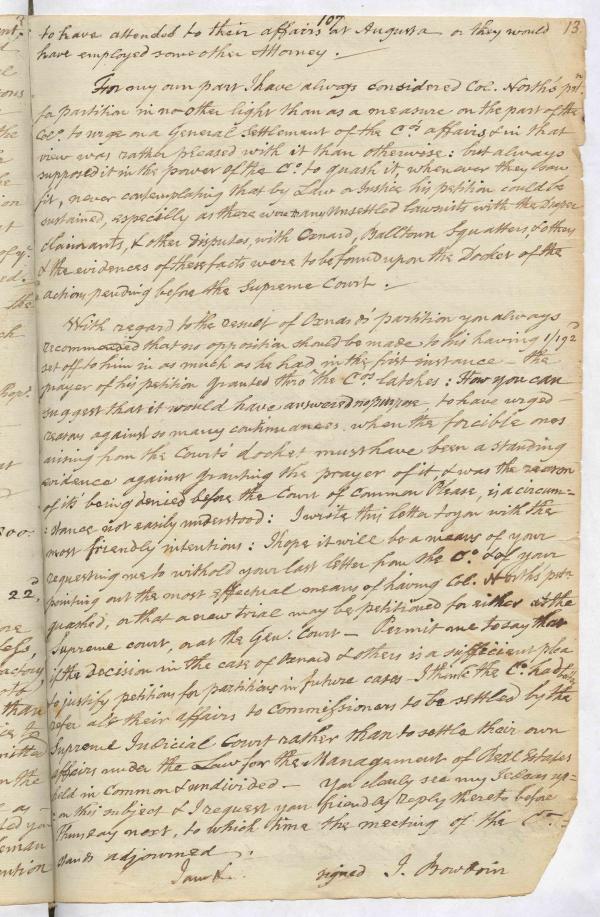 107
13.
to have attended to their affairs at Augusta or they would
have employed some other Attorney.
For my own part I have always considered Col. North's petn
for partition in no other light than as a measure on the part of the
Coy. to urge on a General Settlement of the Cos affairs & in that
view was rather pleased with it than otherwise: but always
supposed it in the power of the Co. to quash it, whenever they saw
fit, never contemplating that by Law or Justice his petition could be
sustained, especially as there were many Unsettled lawsuits with the
claimants, & other disputes, with Conard, Balltown Squatters, & others
& the evidences of these facts were to be found upon the Docket of the
actions pending before the Supreme Court.
With regard to the result of Oxnards' partition you always
recommended that no opposition should be made to his having 1/192d
set off to him in as much as he had in the first instance - the
prayer of his petition granted thro' the Cos latches: How you can
suggest that it would have answered no purpose, to have urged -
reasons against so many continuances when the forcible ones
arising from the Courts' docket must have been a standing
evidence against granting the prayer of it & was the reason
of its being denied before the Court of Common Pleas, is a circum=
=stance not easily understood: I write this letter to you with the
most friendly intentions: I hope it will be a means of your
requesting me to withold your last letter from the Co. & of your
pointing out the most effectual means of having Col. North's petn
quashed, or that a new trial may be petitioned for either at the
Supreme court, or at the Genl. Court - Permit me to say that
if the decision in the case of Oxnard & others is a sufficient plea
to justify petitions for partitions in future cases - I think the Co. had
refer all their affairs to Commissioners to be settled by the
Supreme Judicial Court rather than to settle their own
affairs under the Law for the Management of Real Estates
held in Common & undivided - You clearly see my Ideas up=
=on this subject & I request you friendly reply thereto before
Thursday next, to which time the meeting of the Co. -
stands adjourned.
I am &.
signed J. Bowdoin